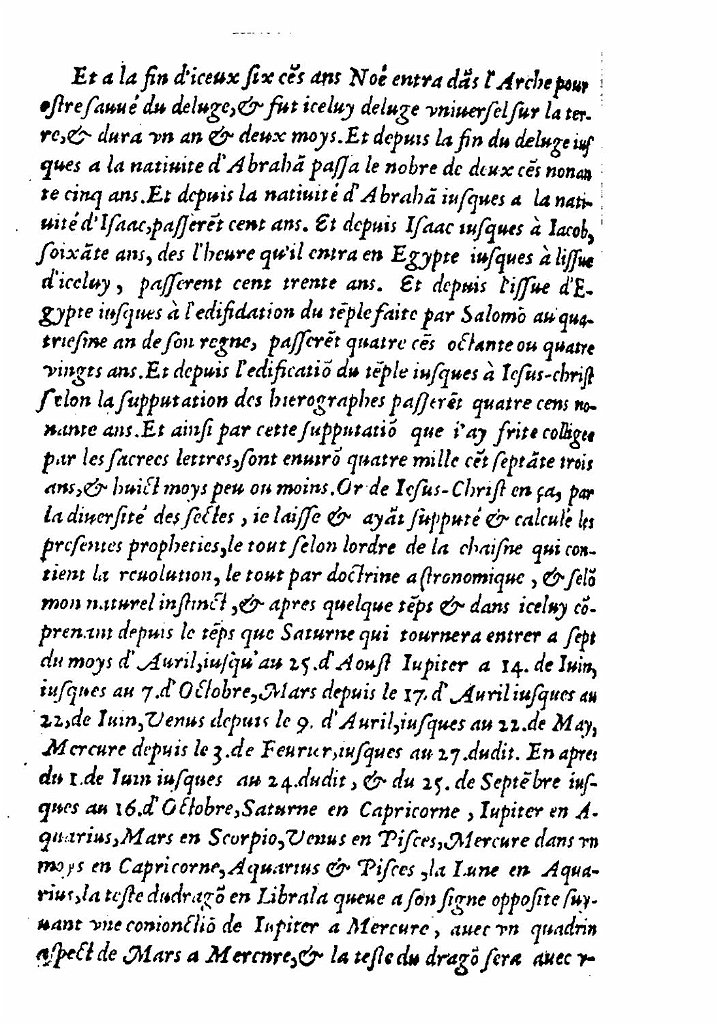 Et a la fin d'iceux ſix cẽs ans Noé entra dãs l'Arche pour
eſtre ſauué du deluge, & fut iceluy deluge vniuerſel ſur la ter-
re, & dura vn an & deux moys. Et depuis la fin du deluge iuſ
ques a la natiuite d'Abrahã paſſa le nobre de deux cẽs nonan
te cinq ans. Et depuis la natiuité d'Abrahã iuſques a la nati-
uité d'Iſaac, paſſerẽt cent ans. Et depuis Iſaac iuſques à Iacob,
ſoixãte ans, des l'heure qu'il entra en Egypte iuſques à liſſue
d'iceluy, paſſerent cent trente ans. Et depuis l'iſſue d'E-
gypte iuſques à l'edifidation du tẽple faite par Salomõ au qua-
trieſme an de ſon regne, paſſerẽt quatre cẽs octante ou quatre
vingts ans. Et depuis l'edificatiõ du tẽple iuſques à Ieſus-chriſt
ſelon la ſupputation des hierographes paſſerẽt quatre cens no-
nante ans. Et ainſi par cette ſupputatiõ que i'ay frite colligee
par les ſacrees lettres, ſont enuirõ quatre mille cẽt ſeptãte trois
ans, & huict moys peu ou moins. Or de Ieſus-Chriſt en ça, par
la diuerſité des ſectes, ie laiſſe & ayãt ſupputé & calculé les
preſentes propheties, le tout ſelon lordre de la chaiſne qui con-
tient la reuolution, le tout par doctrine aſtronomique, & ſelõ
mon naturel inſtinct, & apres quelque tẽps & dans iceluy cõ-
prenant depuis le tẽps que Saturne qui tournera entrer a ſept
du moys d'Auril, iuſqu'au 25. d'Aouſt Iupiter a 14. de Iuin,
iuſques au 7. d'Octobre, Mars depuis le 17. d'Auril iuſques au
22, de Iuin, Venus depuis le 9. d'Auril, iuſques au 22. de May,
Mercure depuis le 3. de Feurier, iuſques au 27. dudit. En apres
du 1. de Iuin iuſques au 24. dudit, & du 25. de Septẽbre iuſ-
ques au 16. d'Octobre, Saturne en Capricorne, Iupiter en A-
quarius, Mars en Scorpio, Venus en Piſces, Mercure dans vn
moys en Capricorne, Aquarius & Piſces, la Lune en Aqua-
rius, la teſte dudragõ en Librala queue a ſon ſigne oppoſite ſuy-
uant vne conionctiõ de Iupiter a Mercure, auec vn quadrin
aſpect de Mars a Mercnre, & la teſte du dragõ ſera auec v-